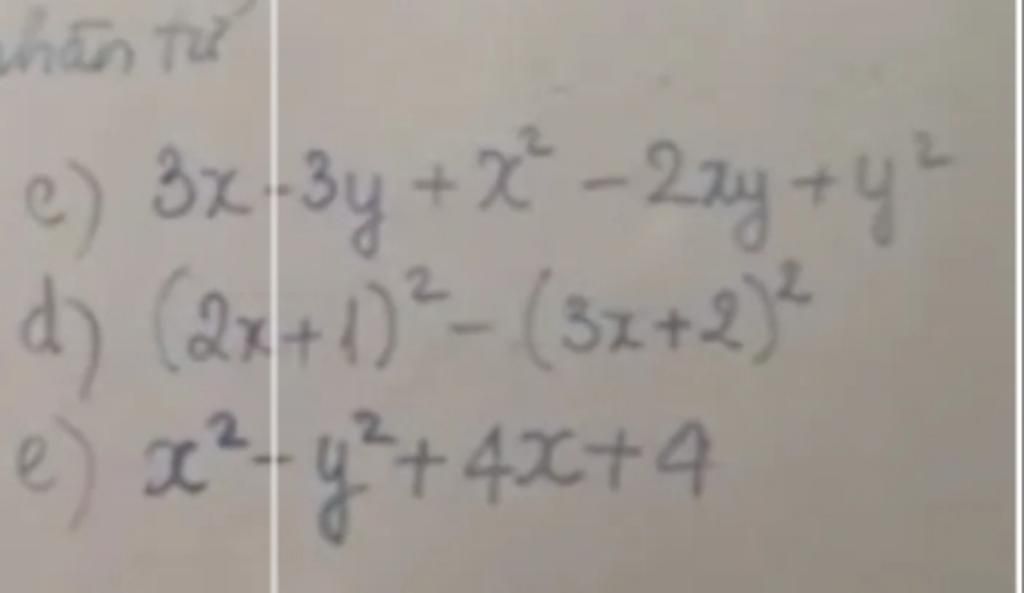 nhân tử
c) 3x - 3y + x² - 2xy + y²
d) (2x+1)² - (3x+2)²
e) x² - y² + 4x + 4